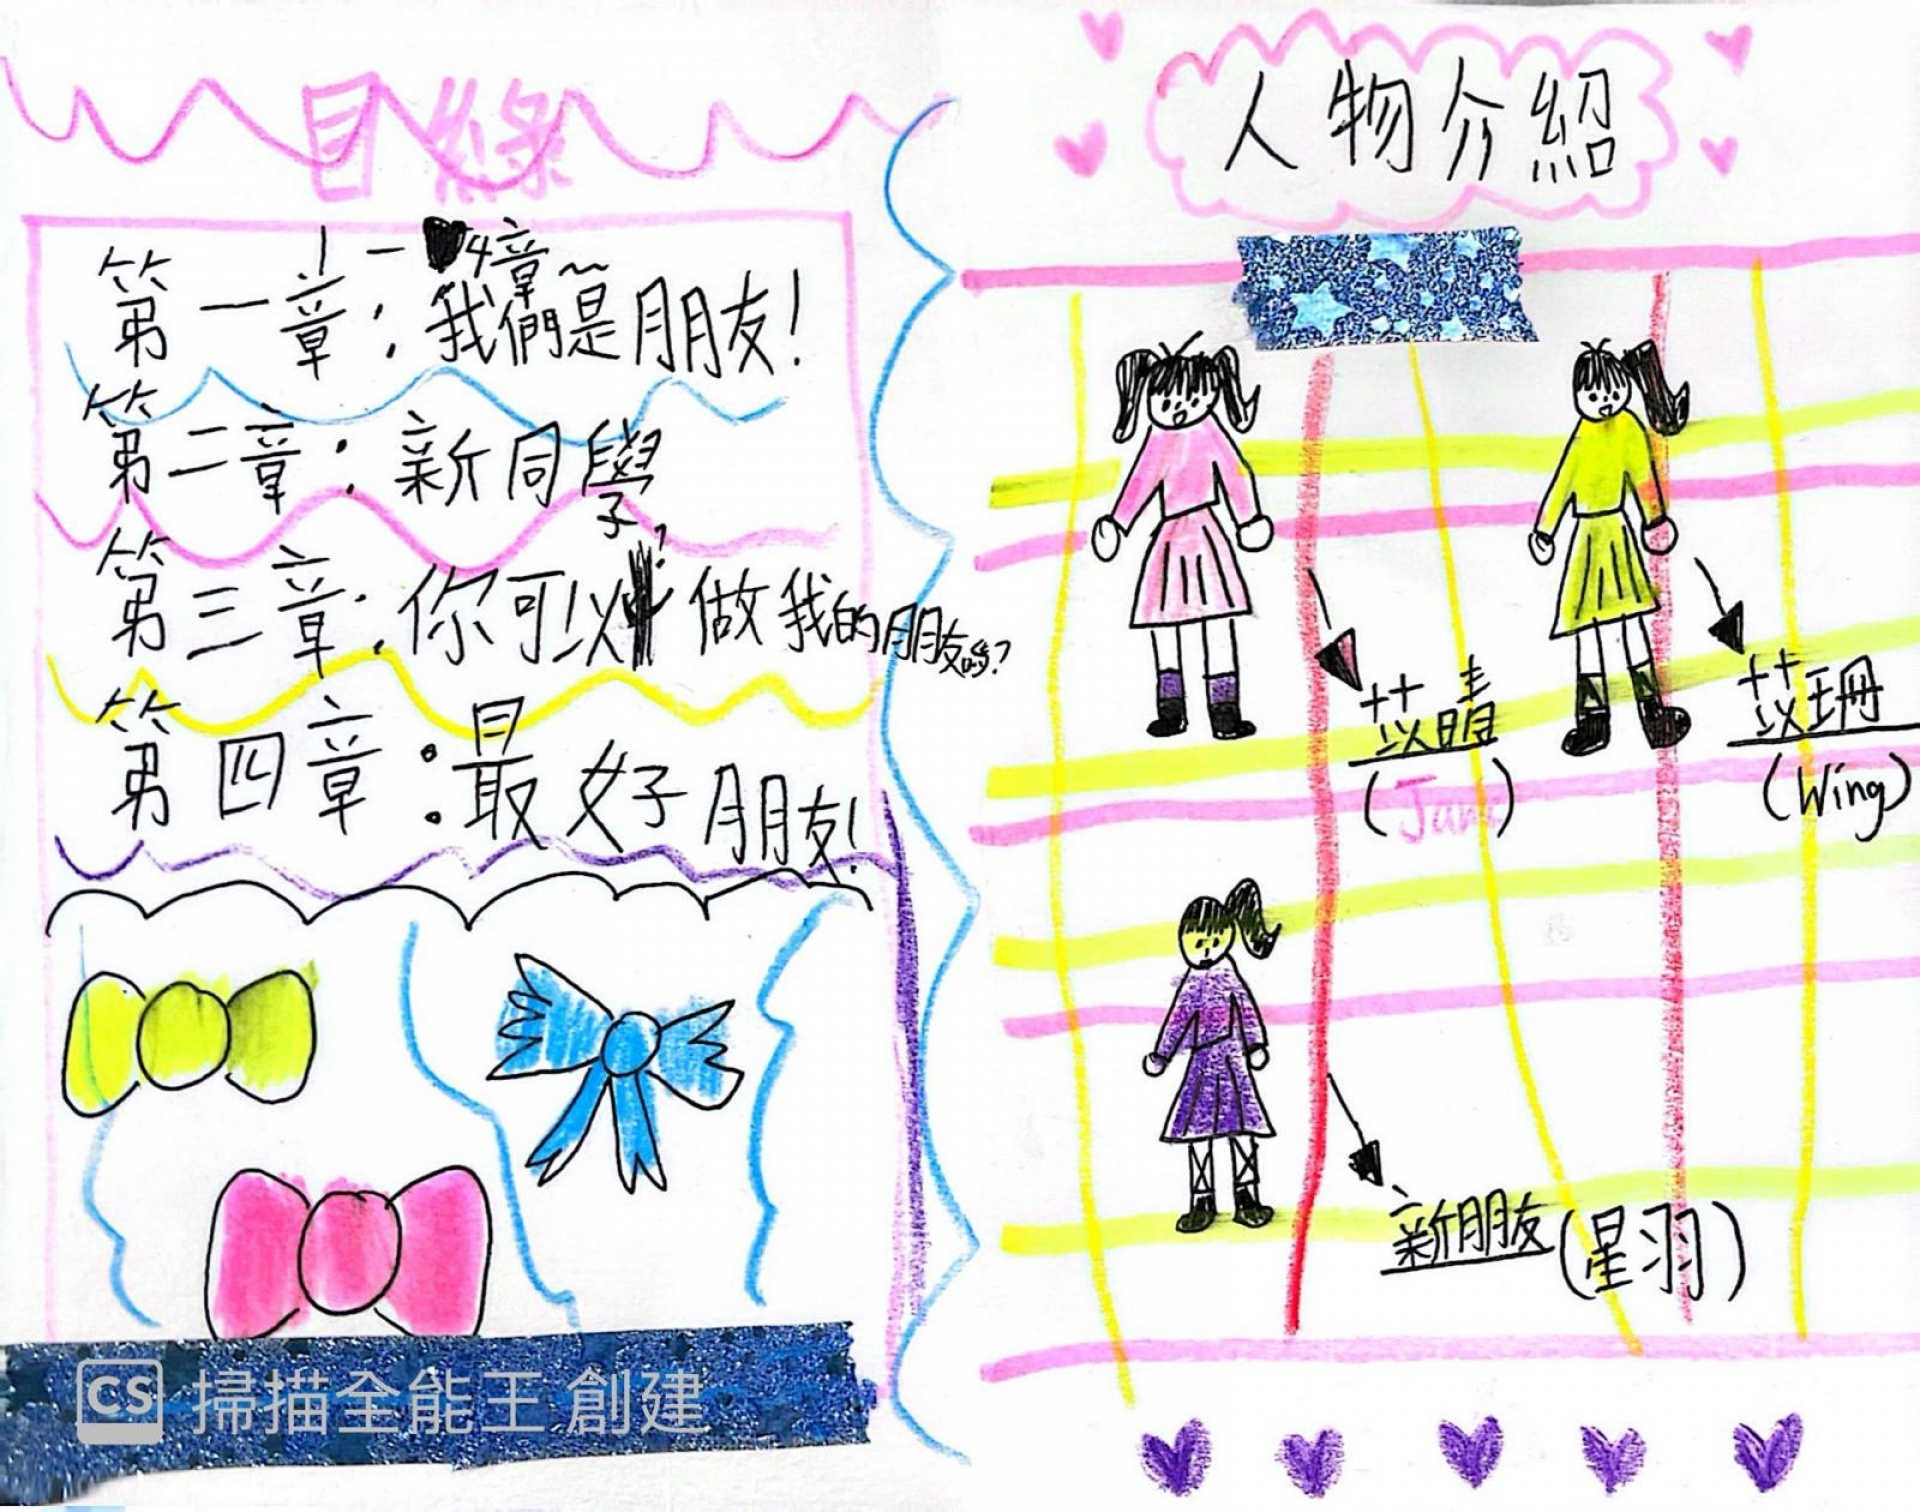 目錄
1-4章~
第一章：我們是朋友！
第二章：新同學
第三章：你可以做我的朋友嗎？
第四章：最好朋友！
CS 掃描全能王 創建
人物介紹
苡晴
苡珊
(Wing)
新朋友(星羽)